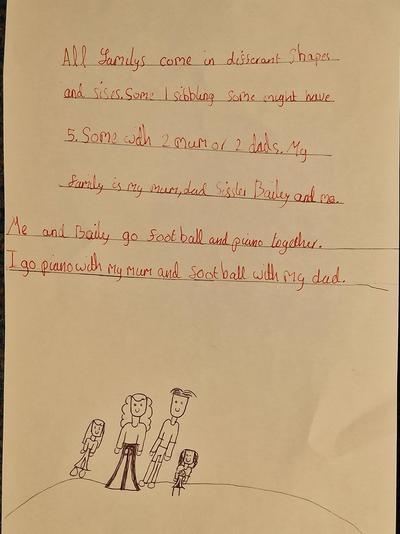 All familys come in differant shapes
and sises. Some 1 sibbling some might have
5. Some with 2 mum or 2 dads. My
family is my mum, dad sister Bailey and me.
Me and Baily go football and piano together.
I go piano with my mum and football with my dad.